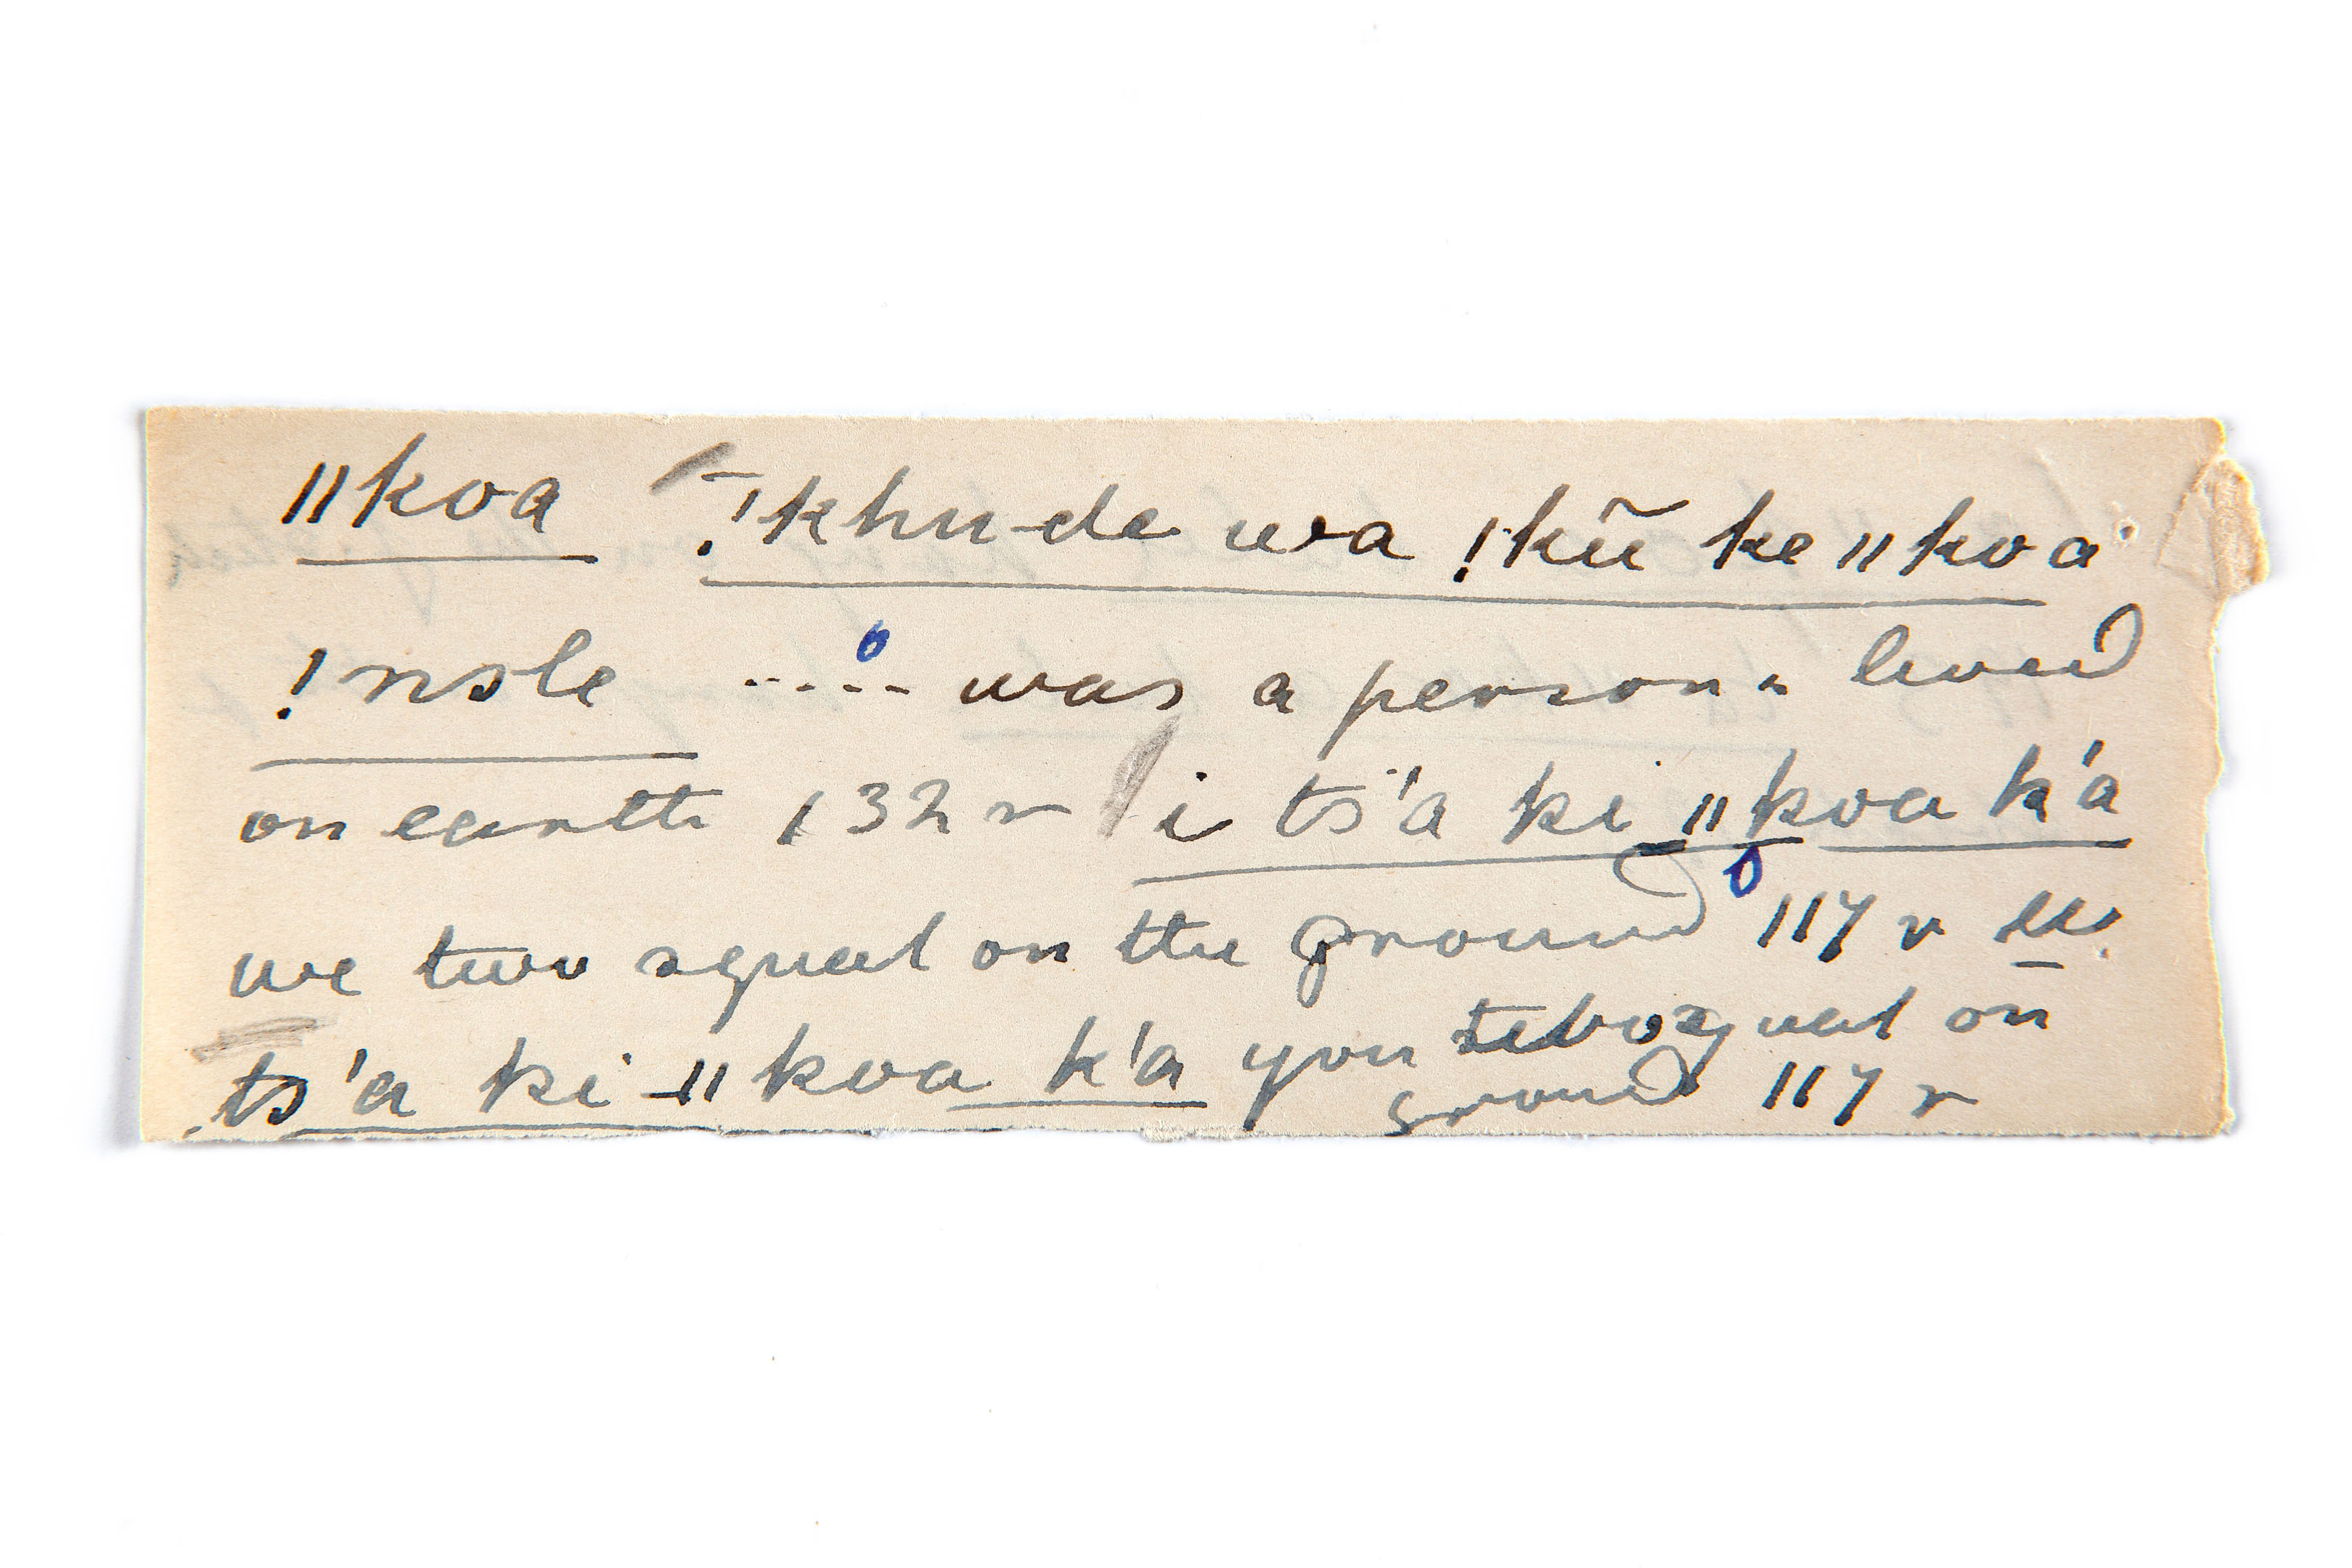 ǁkoa ǃkhu-de wa ǃkũ ke ǁkoa
ǃnole ..... was a person & lived
on earth 132 r i ts'a ki ǁkoa k'a
we two squat on the ground 117 r u
ts'a ki ǁkoa k'a you two squat on
ground 117 r